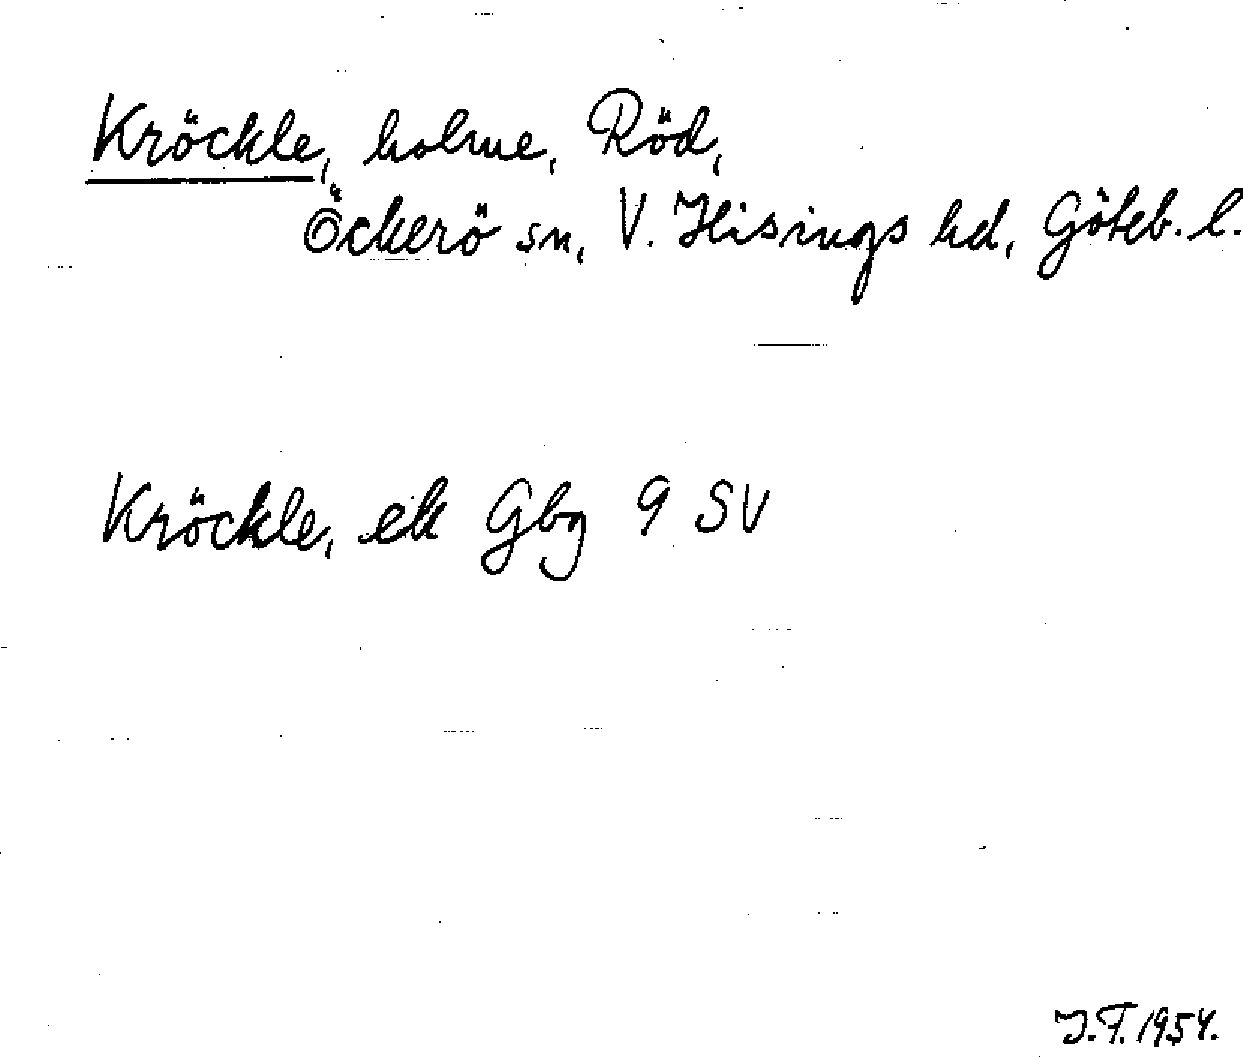 Kröckle, holme, Röd,
Öckerö sn, V. Hisings hd, Göteb. l.
Kröckle, ek Gbg 9 SV
J.F. 1954.